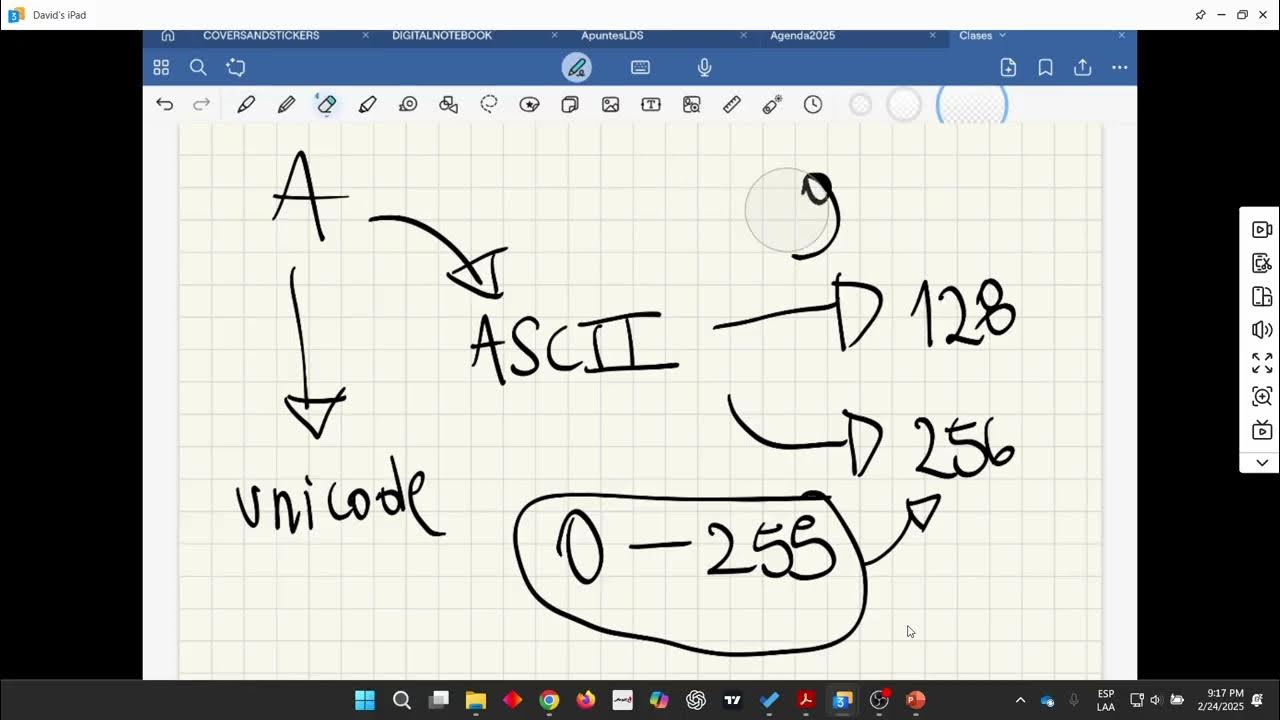 David's iPad
COVERSANDSTICKERS DIGITALNOTEBOOK ApuntesLDS Agenda2025 Clases
A
ASCII
128
256
unicode
0 - 255
ESP
LAA
9:17 PM
2/24/2025